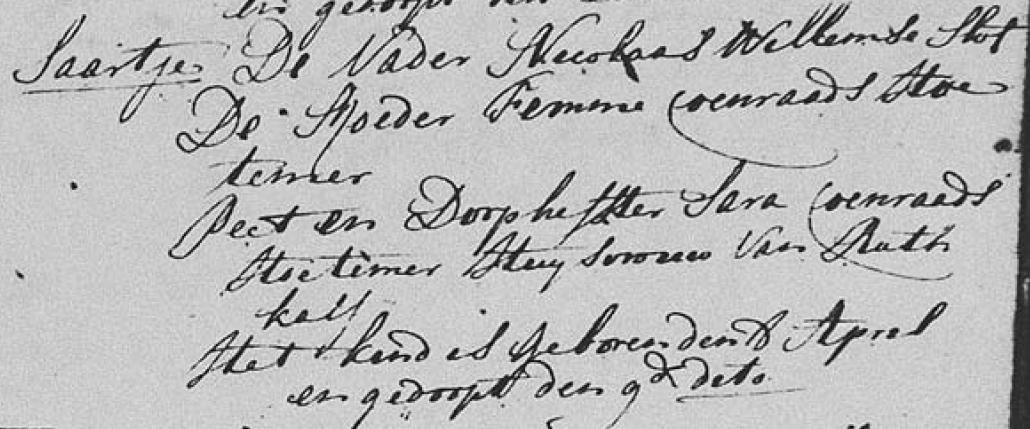 en gedoopt den
Saartje De Vader Nicolaas Willemse Slot
De Moeder Femme Coenraads Hoe
temer
Peet en Doophefster Sara Coenraads
Hoetemer Huysvrouw van Ruth
kall
Het kind is geboren den 8 April
en gedoopt den 9de deto